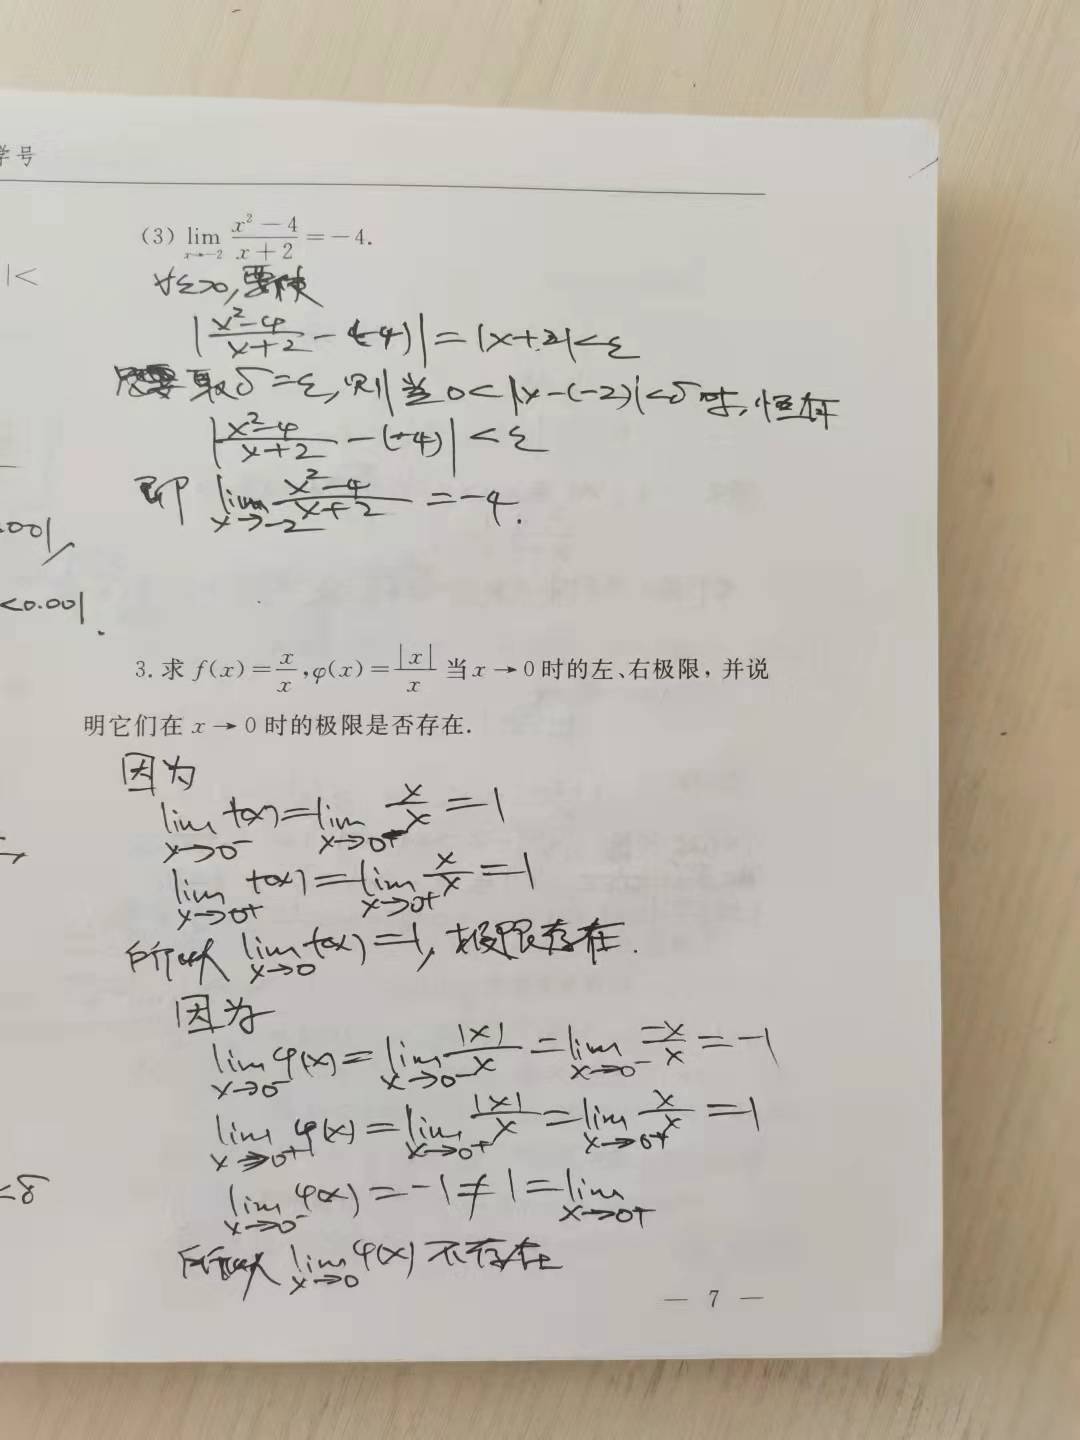 学号
(3) lim x→-2 (x²-4)/(x+2) = -4.
|<
∀ε>0, 要使
|(x²-4)/(x+2) - (-4)| = |x+2| < ε
只要取δ=ε, 则当 0<|x-(-2)|<δ时, 恒有
|(x²-4)/(x+2) - (-4)| < ε
即 lim x→-2 (x²-4)/(x+2) = -4.
.001,
<0.001.
3. 求 f(x)=x/x, φ(x)=|x|/x 当 x→0 时的左、右极限, 并说
明它们在 x→0 时的极限是否存在.
因为
lim x→0⁻ f(x) = lim x→0⁺ x/x = 1
lim x→0+ f(x) = lim x→0+ x/x = 1
所以 lim x→0 f(x) = 1, 极限存在.
因为
lim x→0⁻ φ(x) = lim x→0⁻ |x|/x = lim x→0⁻ -x/x = -1
lim x→0+ φ(x) = lim x→0+ |x|/x = lim x→0+ x/x = 1
<δ
lim x→0⁻ φ(x) = -1 ≠ 1 = lim x→0+
所以 lim x→0 φ(x) 不存在
— 7 —